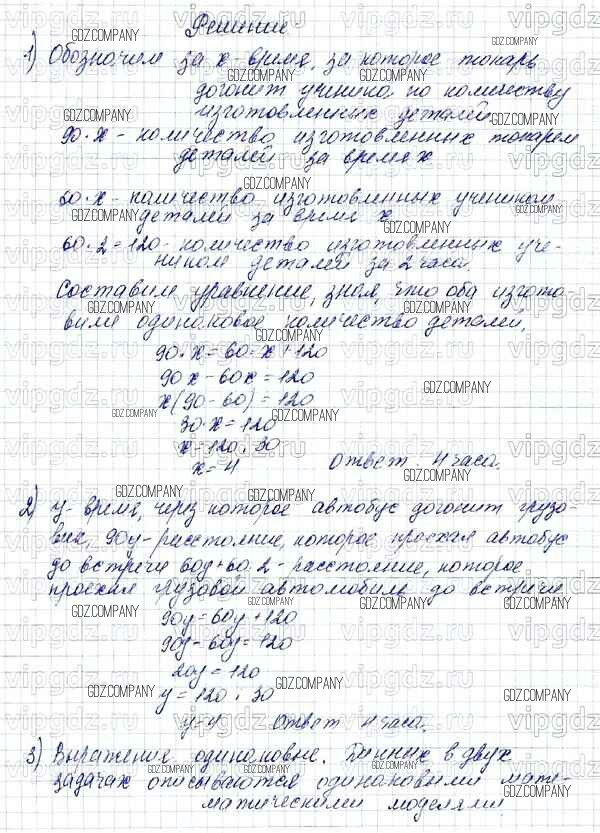 Решение.
1) Обозначим за x - время, за которое токарь
догонит ученика по количеству
изготовленных деталей
90·x - количество изготовленных токарем
деталей за время x
60·x - количество изготовленных учеником
деталей за время x
60·2=120 - количество изготовленных уче-
ником деталей за 2 часа.
Составим уравнение, зная, что оба изгото-
вили одинаковое количество деталей.
90·x=60·x+120
90x-60x=120
x(90-60)=120
30·x=120
x=120:30
x=4
Ответ 4 часа.
2) y - время, через которое автобус догонит грузо-
вик, 90y - расстояние, которое проехал автобус
до встречи 60y+60·2 - расстояние, которое
проехал грузовой автомобиль до встречи
90y=60y+120
90y-60y=120
20y=120
y=120:30
y=4
Ответ 4 часа.
3) Выражения одинаковые. Данных в двух
задачах описываются одинаковыми мате-
матическими моделями
GDZ.COMPANY
vipgdz.ru